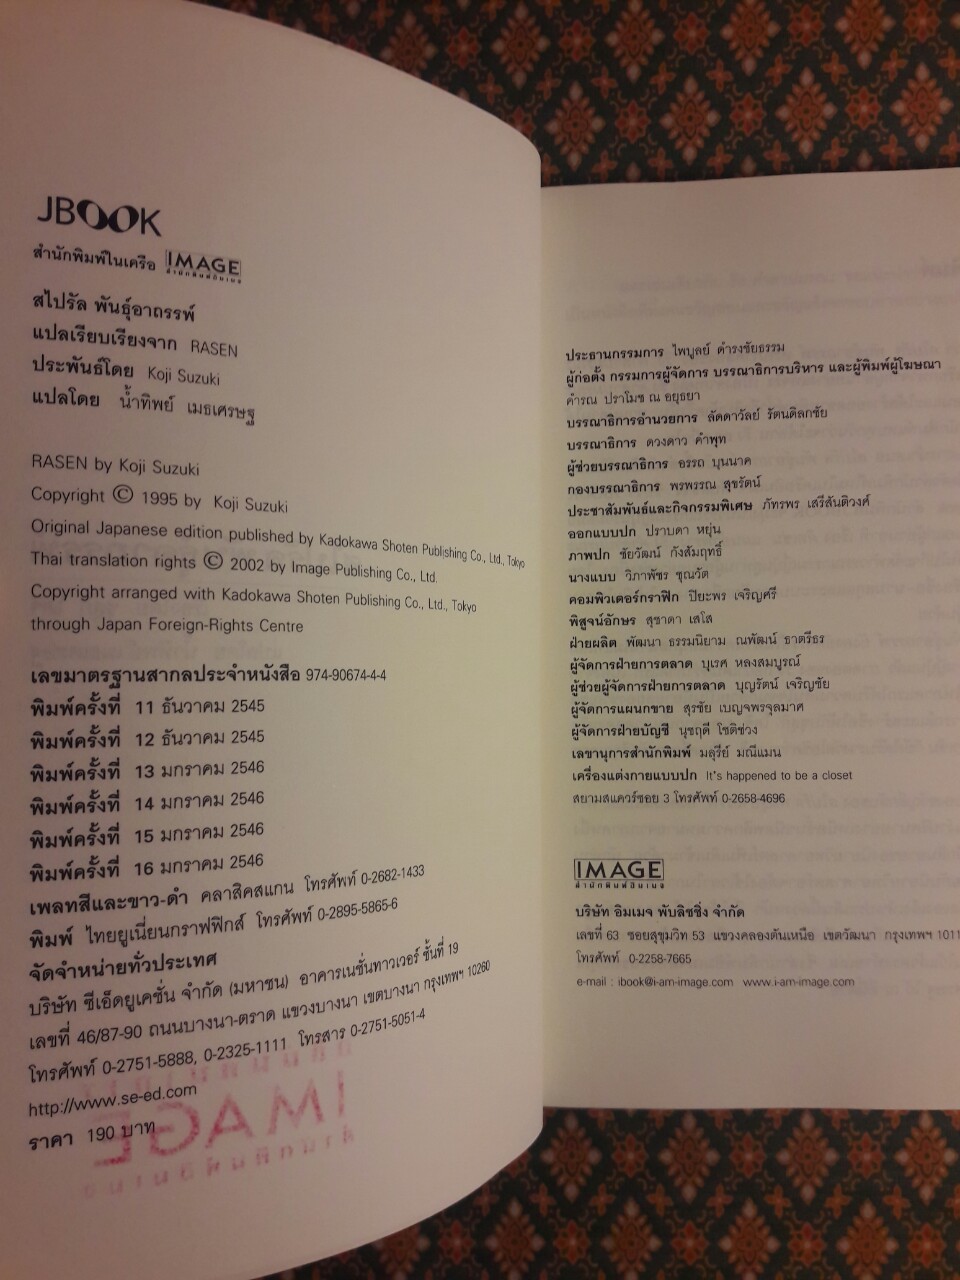 JBOOK
สำนักพิมพ์ในเครือ IMAGE
สำนักพิมพ์อิมเมจ
สไปรัล พันธุ์อาถรรพ์
แปลเรียบเรียงจาก RASEN
ประพันธ์โดย Koji Suzuki
แปลโดย น้ำทิพย์ เมธเศรษฐ
RASEN by Koji Suzuki
Copyright © 1995 by Koji Suzuki
Original Japanese edition published by Kadokawa Shoten Publishing Co., Ltd., Tokyo
Thai translation rights © 2002 by Image Publishing Co., Ltd.
Copyright arranged with Kadokawa Shoten Publishing Co., Ltd., Tokyo
through Japan Foreign-Rights Centre
เลขมาตรฐานสากลประจำหนังสือ 974-90674-4-4
พิมพ์ครั้งที่ 11 ธันวาคม 2545
พิมพ์ครั้งที่ 12 ธันวาคม 2545
พิมพ์ครั้งที่ 13 มกราคม 2546
พิมพ์ครั้งที่ 14 มกราคม 2546
พิมพ์ครั้งที่ 15 มกราคม 2546
พิมพ์ครั้งที่ 16 มกราคม 2546
เพลทสีและขาว-ดำ คลาสิคสแกน โทรศัพท์ 0-2682-1433
พิมพ์ ไทยยูเนี่ยนกราฟฟิกส์ โทรศัพท์ 0-2895-5865-6
จัดจำหน่ายทั่วประเทศ
บริษัท ซีเอ็ดยูเคชั่น จำกัด (มหาชน) อาคารเนชั่นทาวเวอร์ ชั้นที่ 19
เลขที่ 46/87-90 ถนนบางนา-ตราด แขวงบางนา เขตบางนา กรุงเทพฯ 10260
โทรศัพท์ 0-2751-5888, 0-2325-1111 โทรสาร 0-2751-5051-4
http://www.se-ed.com
ราคา 190 บาท
ประธานกรรมการ ไพบูลย์ ดำรงชัยธรรม
ผู้ก่อตั้ง กรรมการผู้จัดการ บรรณาธิการบริหาร และผู้พิมพ์ผู้โฆษณา
คำรณ ปราโมช ณ อยุธยา
บรรณาธิการอำนวยการ ลัดดาวัลย์ รัตนดิลกชัย
บรรณาธิการ ดวงดาว คำพุท
ผู้ช่วยบรรณาธิการ อรรถ บุนนาค
กองบรรณาธิการ พรพรรณ สุขรัตน์
ประชาสัมพันธ์และกิจกรรมพิเศษ ภัทรพร เสรีสันติวงศ์
ออกแบบปก ปราบดา หยุ่น
ภาพปก ชัยวัฒน์ กังสัมฤทธิ์
นางแบบ วิภาพัชร ชุณวัต
คอมพิวเตอร์กราฟิก ปิยะพร เจริญศรี
พิสูจน์อักษร สุชาดา เสโส
ฝ่ายผลิต พัฒนา ธรรมนิยาม ณพัฒน์ ธาตรีธร
ผู้จัดการฝ่ายการตลาด บุเรศ หลงสมบูรณ์
ผู้ช่วยผู้จัดการฝ่ายการตลาด บุญรัตน์ เจริญชัย
ผู้จัดการแผนกขาย สุรชัย เบญจพรจุลมาศ
ผู้จัดการฝ่ายบัญชี นุชฤดี โชติช่วง
เลขานุการสำนักพิมพ์ มลุรีย์ มณีแมน
เครื่องแต่งกายแบบปก It's happened to be a closet
สยามสแควร์ซอย 3 โทรศัพท์ 0-2658-4696
IMAGE
สำนักพิมพ์อิมเมจ
บริษัท อิมเมจ พับลิชชิ่ง จำกัด
เลขที่ 63 ซอยสุขุมวิท 53 แขวงคลองตันเหนือ เขตวัฒนา กรุงเทพฯ 1011
โทรศัพท์ 0-2258-7665
e-mail : ibook@i-am-image.com www.i-am-image.com
IMAGE